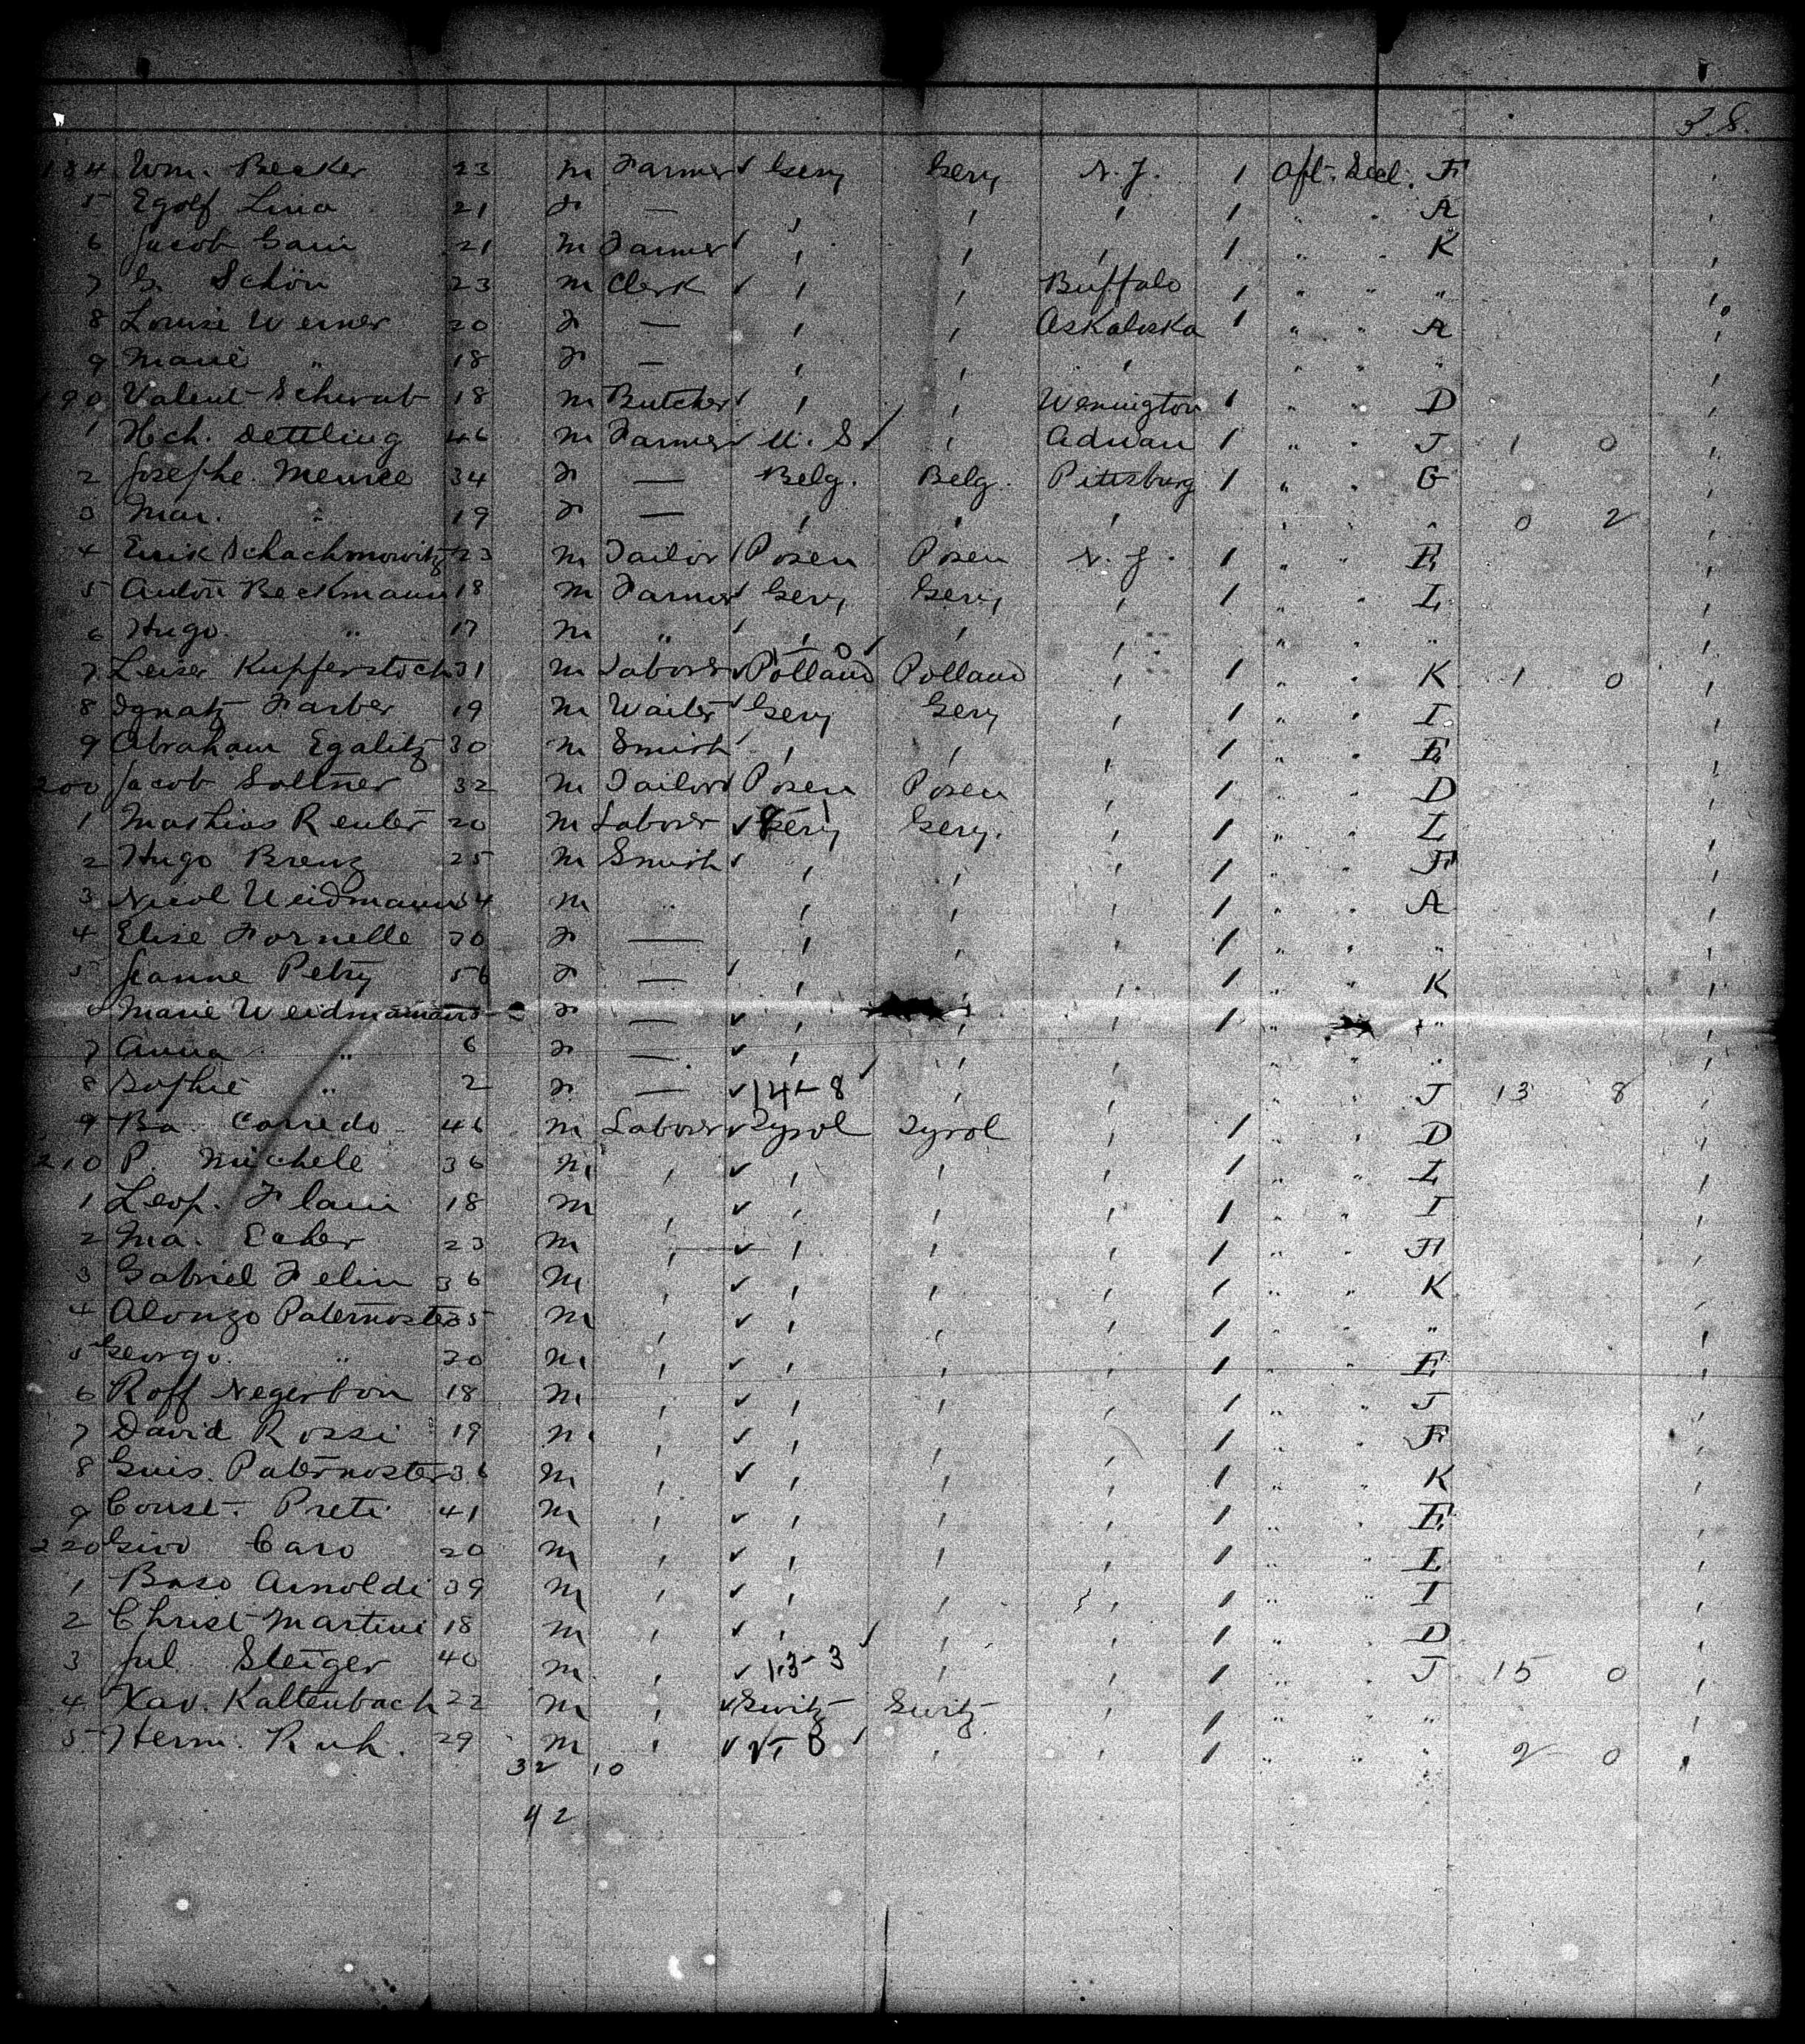 184 Wm. Becker 23 m Farmer ✓ Gery Gery N.Y. 1 Aft. Decl. F ,
5 Egolf Lina 21 F — , , , 1 " " A ,
6 Jacob 21 m Farmer ✓ , , , 1 " " K ,
7 G. Schön 23 m Clerk ✓ , , Buffalo 1 " " " ,
8 Louise Werner 20 F — , , Oskaloska 1 " " A ,
9 Marie " 18 F — , , , " " " ,
190 Valent Schwab 18 m Butcher ✓ , , 1 " " D ,
1 Hch. Dettling 46 m Farmer ✓ U. S. , Adrian 1 " " J 1 0 ,
2 Josephe Meunee 34 F — Belg. Belg. Pittsburg 1 " " G ,
3 Mar. " 19 F — , , , " " " 0 2 ,
4 Schachmowitz 23 m Tailor Posen Posen N.Y. 1 " " E ,
5 Anton Beckmann 18 m Farmer ✓ Gery Gery , 1 " " L ,
6 Hugo " 17 m " , , , " " " ,
7 Leiser Kupferstoch 31 m Laborer ✓ Polland Polland , 1 " " K 1 0 ,
8 Ignatz Farber 19 m Waiter ✓ Gery Gery , 1 " " I ,
9 Abraham Egalitz 30 m Smith , , , 1 " " E ,
200 Jacob Soltner 32 m Tailor Posen Posen , 1 " " D ,
1 Mathias Reuter 20 m Laborer ✓ Gery Gery. , 1 " " L ,
2 Hugo Brenz 25 m Smith ✓ , , , 1 " " F ,
3 Nicol Weidmann 34 m " , , , 1 " " A ,
4 Elise Fornelle 30 F — , , , 1 " " " ,
5 Jeanne Petry 56 F — , , , 1 " " K ,
6 Marie Weidmann F — ✓ , , , 1 " " ,
7 Anna " 6 F — ✓ , , , " " ,
8 Sophie " 2 F — ✓ 14-8 , , " " J 13 8 ,
9 Ba. Corredo 46 m Laborer ✓ Tyrol Tyrol , 1 " " D ,
210 P. Michele 36 m , ✓ , , , 1 " " L ,
1 Leop. Flaim 18 m , ✓ , , , 1 " " I ,
2 Ma. Echer 23 m , ✓ , , , 1 " " F ,
3 Gabriel Felin 36 m , ✓ , , , 1 " " K ,
4 Alonzo Paternoster 35 m , ✓ , , , 1 " " " ,
5 Georgo " 20 m , ✓ , , , 1 " " E ,
6 Roff Negerbon 18 m , ✓ , , , 1 " " J ,
7 David Rossi 19 m , ✓ , , , 1 " " F ,
8 Guis. Paternoster 36 m , ✓ , , , 1 " " K ,
9 Const. Preti 41 m , ✓ , , , 1 " " E ,
220 Giov Caro 20 m , ✓ , , , 1 " " L ,
1 Baso Arnoldi 39 m , ✓ , , , 1 " " I ,
2 Christ Martini 18 m , ✓ , , , 1 " " D ,
3 Jul. Steiger 40 m , ✓ 13-3 , , 1 " " J 15 0 ,
4 Xav. Kaltenbach 22 m , ✓ Switz Switz , 1 " " " ,
5 Herm. Ruh. 29 m , ✓ , , 1 " " " 2 0 ,
32 10
42